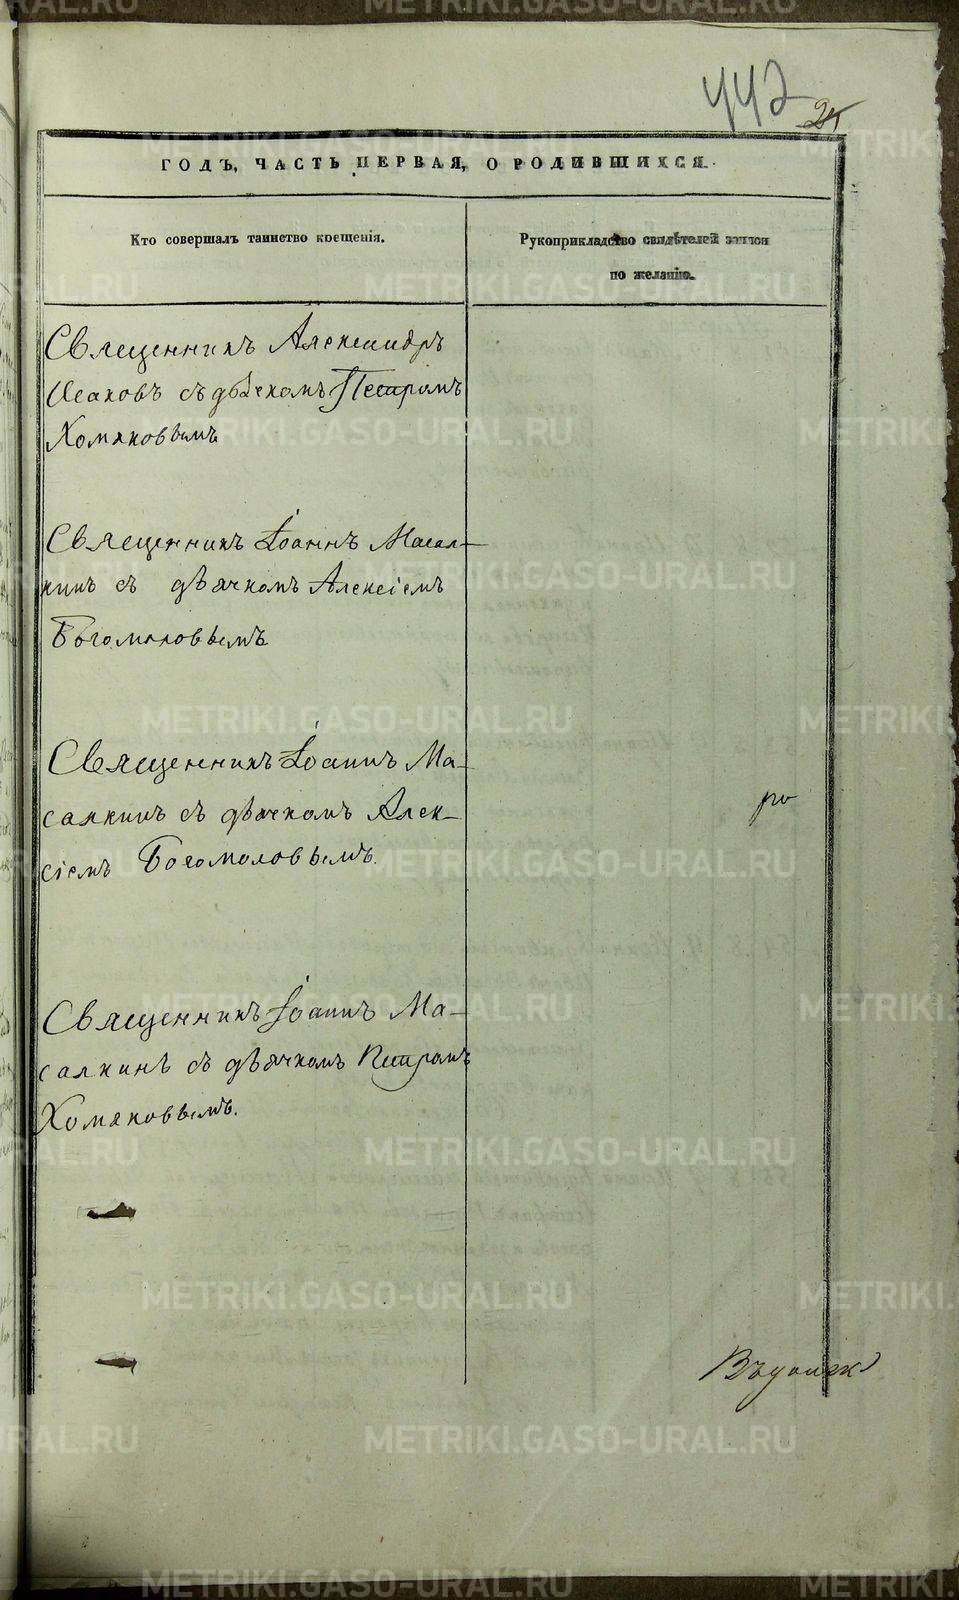 442
25
ГОДЪ, ЧАСТЬ ПЕРВАЯ, О РОДИВШИХСЯ.
Кто совершалъ таинство крещенія.
Рукоприкладство свидѣтелей записи
по желанію.
Священникъ Александръ
Исаковъ съ дьячкомъ Петромъ
Хомяковымъ
Священникъ Іоаннъ Масал-
кинъ съ дьячкомъ Алексіемъ
Богомоловымъ
Священникъ Іоаннъ Ма-
салкинъ съ дьячкомъ Алек-
сіемъ Богомоловымъ.
Священникъ Іоаннъ Ма-
салкинъ съ дьячкомъ Петромъ
Хомяковымъ.
METRIKI.GASO-URAL.RU